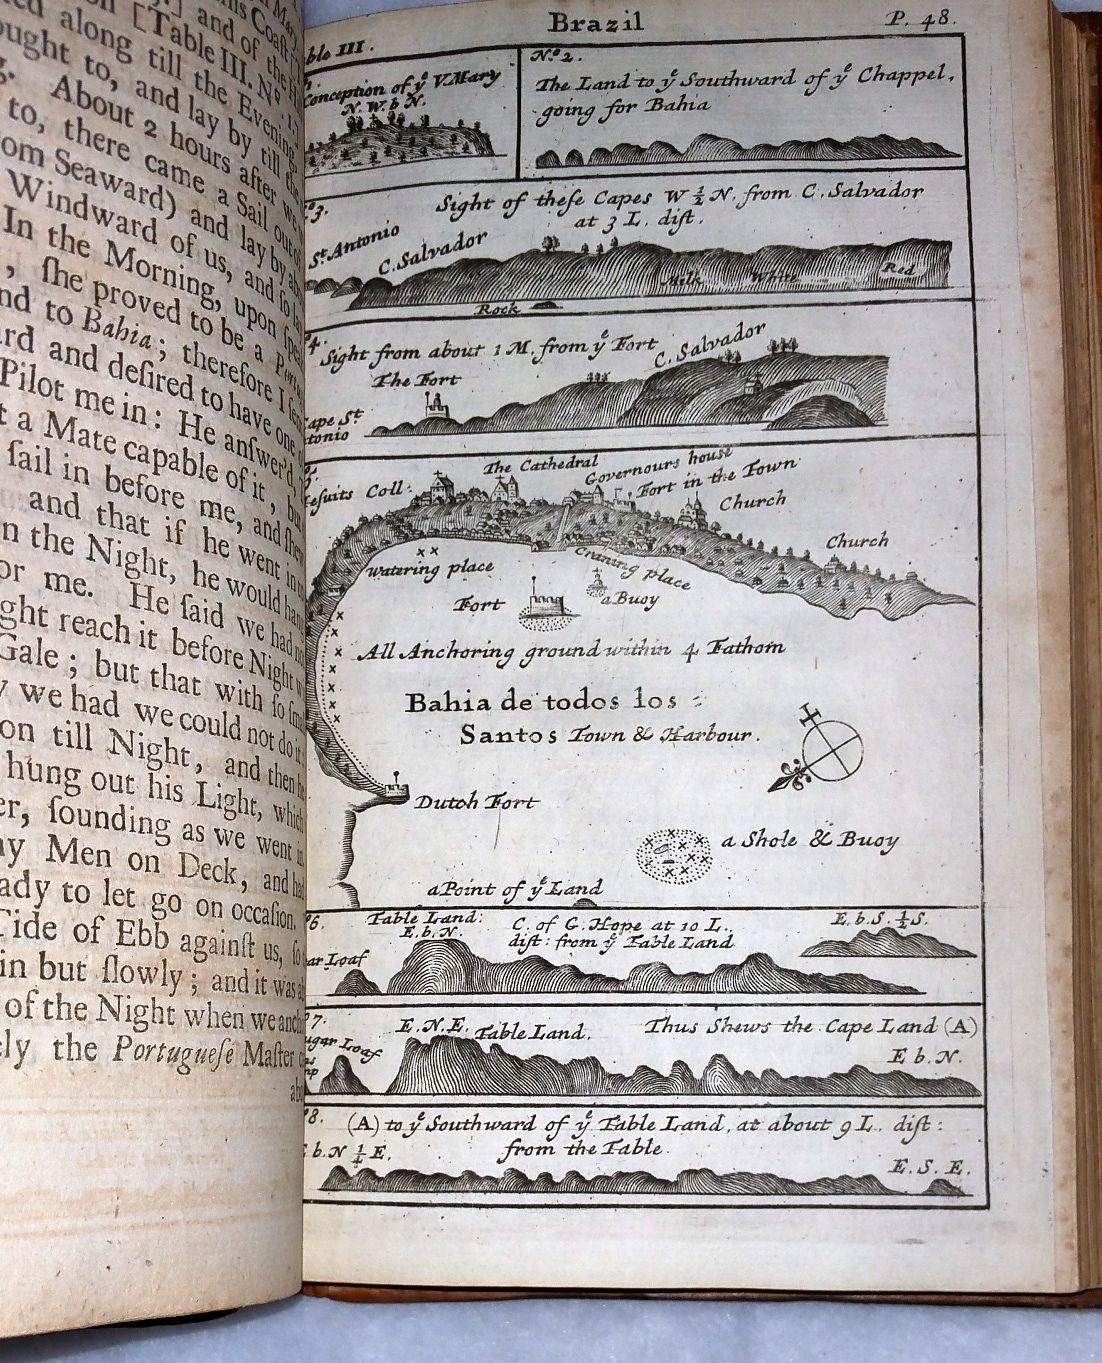 Mary
ns Coast
[Table III.] and of the H
ed along till the Evening,
ought to, and lay by till the
g. About 2 hours after we
to, there came a Sail out of
om Seaward) and lay by abo
Windward of us, and so lay
In the Morning, upon spea
, ſhe proved to be a Portu
nd to Bahia; therefore I ſent
rd and deſired to have one
Pilot me in: He anſwer'd,
t a Mate capable of it, but
ſail in before me, and ſhew
and that if he went in
n the Night, he would hang
or me. He ſaid we had no
ght reach it before Night w
Gale; but that with ſo ſma
y we had we could not do it
on till Night, and then he
hung out his Light, which
er, ſounding as we went in
ay Men on Deck, and had
ady to let go on occaſion.
Tide of Ebb againſt us, ſo
in but ſlowly; and it was a
of the Night when we ancho
ely the Portugueſe Maſter
abo
Brazil P. 48.
ble III.
onception of yͤ V. Mary
N. W. b N.
No. 2.
The Land to yͤ Southward of yͤ Chappel,
going for Bahia
o 3.
Sight of theſe Capes W ½ N. from C. Salvador
at 3 L. diſt.
St. Antonio
C. Salvador
Milk White Red
Rock
o 4.
Sight from about 1 M. from yͤ Fort
C. Salvador
The Fort
ape St.
tonio
5.
The Cathedral
Governours houſe
Jeſuits Coll:
Fort in the Town
Church
Church
Watering place
Craning place
Fort
a Buoy
All Anchoring ground within 4 Fathom
Bahia de todos los
Santos Town & Harbour.
Dutch Fort
a Shole & Buoy
a Point of yͤ Land
o 6.
Table Land:
E. b. N.
C. of G. Hope at 10 L.
diſt: from yͤ Table Land
E. b. S. ½ S.
ar Loaf
o 7.
E. N. E. Table Land.
Thus Shews the Cape Land (A)
E b. N.
ugar Loaf
o 8.
(A) to yͤ Southward of yͤ Table Land, at about 9 L. diſt:
from the Table.
E. b. N ¼ E.
E. S. E.